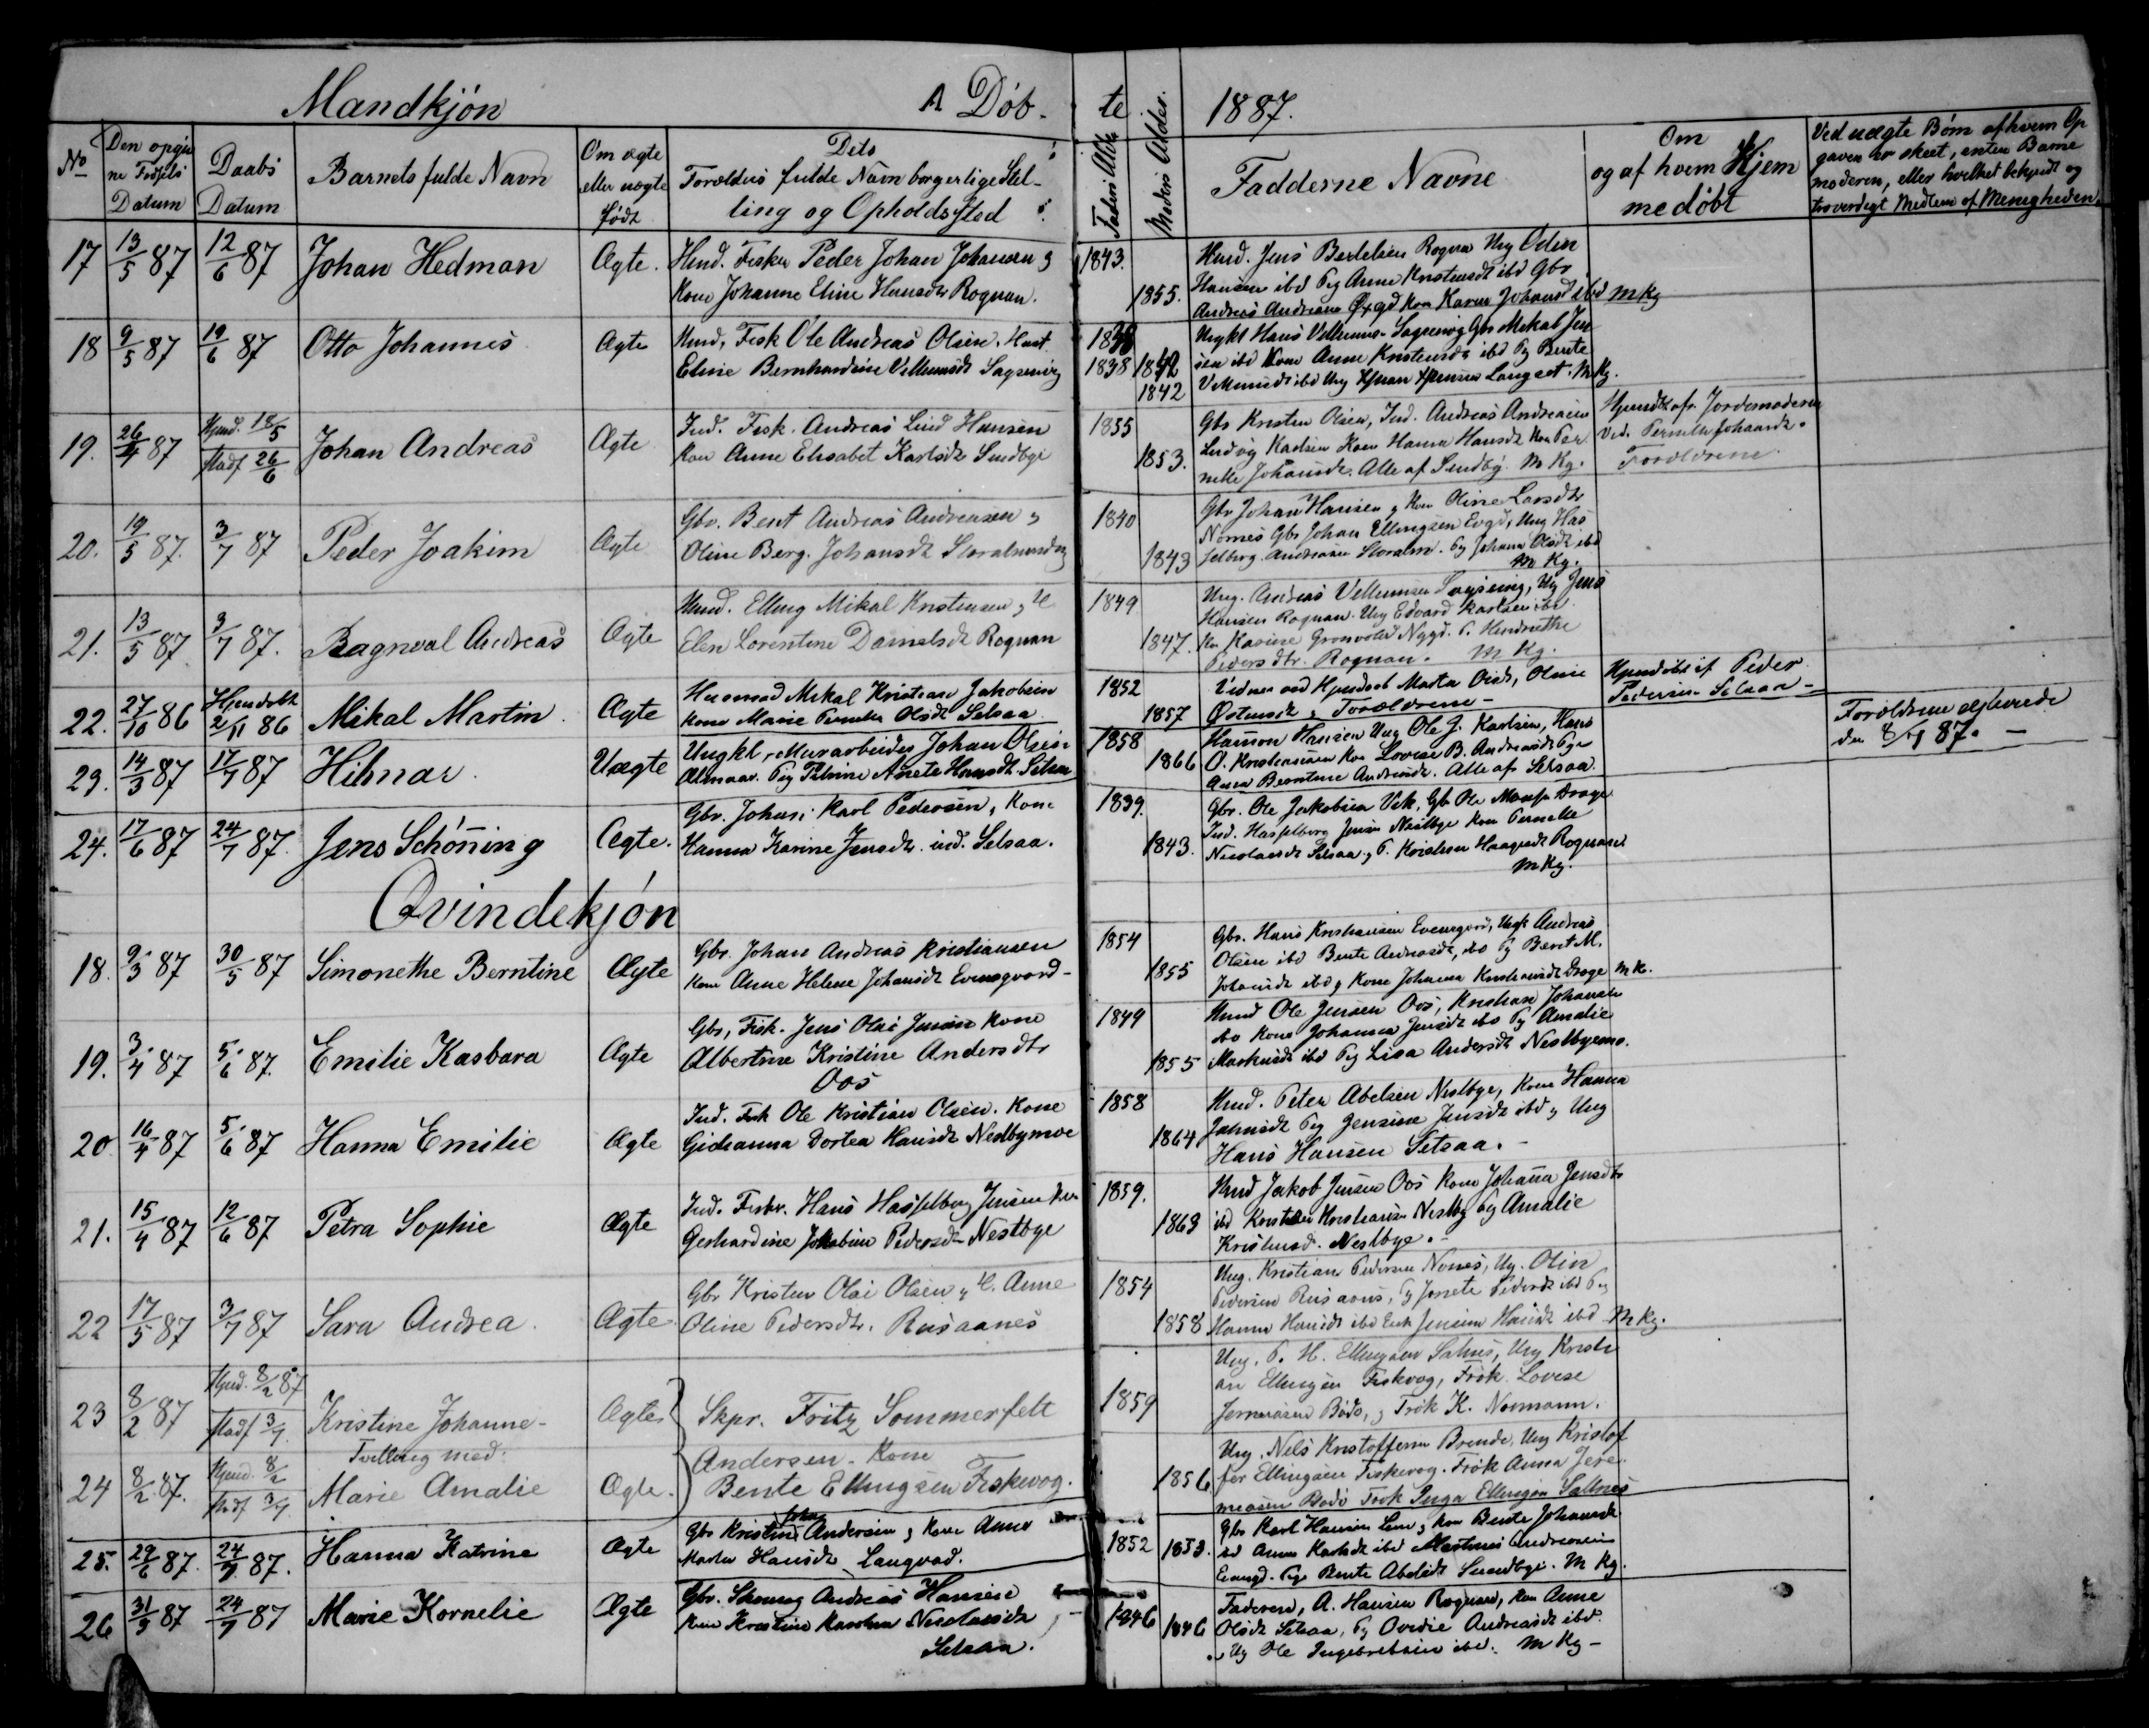 Mandkjön Döb- te 1887.
No
Den opgiv
ne Fødsels
Datum
Daabs
Datum
Barnets fulde Navn
Om ægte
eller uægte
født
Dets
Forældres fulde Navn borgerlige Stel-
ling og Opholdssted
Faders Alder
Moders Alder.
Faddernes Navne
Om
og af hvem Hjem
medøbt
Ved uægte Børn af hvem Op
gaven er skeet, enten Barne
moderen, eller hvilket bekjendt og
troværdigt Medlem af Menigheden
17 13/5 87 12/6 87 Johan Hedman Ægte.
Husd. Fisker Peder Johan Johansen og
Kone Johanne Eline Hansdtr Rognan.
1843. 1855.
Husd. Jens Bertelsen Rognan Ung Odin
Hansen ibd Pig Anne Kristensdt ibd Gbr
Andreas Andreasen Kone Karen Johansd ibd m kg
18 9/5 87 19/6 87 Otto Johannes Ægte
Husd, Fisk Ole Andreas Olsen. Hust
Eline Bernhardine Villumsdt Sagsving
1838 1838 1842 1842
Ungkl Hans Villumsen Sagsving Gbr Mikal Jen
sen ibd Kone Anne Kristensdt ibd Pg Bente
Villumsdt ibd Ung Langset. m kg.
19. 26/4 87 Hjemd. 18/5 Stadf 26/6 Johan Andreas Ægte
Ind. Fisk. Andreas Lind Hansen
Kone Anne Elisabet Karlsdt Sundbye
1855 1853.
Gbr Kristen Olsen, Ind. Andreas Andreasen
Ludvig Karlsen Kone Hanna Hansdt Kone Per
nelle Johansdt. Alle af Sundby. m kg.
Hjemdt af Jordemoderen
Vid. Pernille Johansdt.
Forældrene.
20. 19/5 87. 3/7 87 Peder Joakim Ægte
Gbr. Bent Andreas Andreasen og
Oline Berg. Johansdt Storalmindg
1840 1843
Gbr Johan Hansen og Kone Oline Larsdtr
Nornes Gbr Johan Ellingsen Evgd, Ung Has
selberg Andreasen Storalm. Pg Johanna Olsdt ibd
m Kg.
21. 13/5 87 3/7 87. Ragnval Andreas Ægte
Husd. Elling Mikal Kristensen og H
Elen Lorentine Danielsdt Rognan
1849 1847.
Ung. Andreas Villumsen Sagsving, Ug Jens
Hansen Rognan. Ung Edvard Karlsen ibd.
Kn Karine Grønvold Nygd. P. Hendriette
Pedersdtr. Rognan. m Kg.
22. 27/10 86 Hjemdøbt 2/11 86 Mikal Martin Ægte
Husmand Mikal Kristian Jakobsen
Kone Marie Pernelle Olsdt Setsaa
1852 1857
Vidner ved Hjemdaab Marta Olsdt, Oline
Østensdt og Forældrene -
Hjemdøbt af Peder
Pedersen Setsaa -
23. 14/3 87 17/7 87 Hilmar. Uægte
Ungkl, Murarbeider Johan Olsen
Almaav. Pig Petrine Anete Hansdt. Setsaa
1858 1866
Hansson Hansen Ung Ole J. Karlsen, Hans
O. Kristiansen Kone Lovise B. Andreasdt Pige
Anna Berntine Andreasdt. Alle af Setsaa.
Forældrene
den 8/7 87. -
24. 17/6 87 24/7 87. Jens Schöning Ægte.
Gbr. Johan Karl Pedersen, Kone
Hanna Karine Jensdt. ind. Setsaa.
1839. 1843.
Gbr. Ole Jakobsen Vik, Gb Ole Drage
Ind. Hasselberg Jensen Nestbye Kone Pernelle
Nicolaisdt Setsaa, P. Rognan
m kg.
Qvindekjön
18. 9/3 87 30/5 87 Simonethe Berntine Ægte
Gbr. Johan Andreas Kristiansen
Kone Anne Helene Johansdt Evensgaard -
1854 1855
Gbr. Hans Kristiansen Evensgaard, Ungk Andreas
Olsen ibd Bente Andreasdt, ibd Pg Berit M.
Johansdt ibd og Kone Johanna Kristiansdt Drage m k.
19. 3/4 87 5/6 87. Emilie Kasbara Ægte
Gbr, Fisk. Jens Olai Jensen Kone
Albertine Kristine Andersdtr
Oos
1849 1855
Husd Ole Jensen Oos, Kristian Johansen
ibd Kone Johanna Jensdt ibd Pg Amalie
Markusdt ibd Pig Lisa Andersdt Nestbyemo.
20 16/4 87 5/6 87 Hanna Emilie Ægte
Ind. Fisk Ole Kristian Olsen. Kone
Gideanna Dortea Hansdt Nestbymoe
1858 1864
Husd. Peter Abelsen Nestbye, Kone Hanna
Johnsdt Pig Jensine Jensdt ibd og Ung
Hans Hansen Setsaa. -
21. 15/4 87 12/6 87 Petra Sophie Ægte
Ind. Fisker. Hans Hasselberg Jensen Kone
Gerhardine Jakobine Pedersdt Nestbye
1859. 1863
Husd Jakob Jensen Oos Kone Johanna Jensdtr
ibd Kristian Nestby Pg Amalie
Kristensd. Nestbye. -
22 17/5 87 3/7 87 Sara Andrea. Ægte
Gbr Kristen Olai Olsen og H. Anne
Oline Pedersdtr. Rusaanes
1854 1858
Ung. Kristian Pedersen Nornes, Ug. Olin
Pedersen Rusaans, Pg Jonete Pedersdt ibd Pg
Hanna Hansdt ibd Enk Jensine Hansdt ibd m kg.
23 8/2 87 Hjemd. 8/2 87 Stadf 3/7. Kristine Johanne- Ægte
Tvilling med:
Skpr. Fritz Sommerfelt
Andersen. Kone
Bente Ellingsen Fiskevog.
1859
Ung. P. H. Ellingsen Saltnes, Ung Kristi
an Ellingsen Fiskvog, Frök. Lovise
Jeremiasen Bodö, og Frök K. Normann.
24 8/2 87. Hjemd. 8/2 Stadf 3/7 Marie Amalie Ægte.
1856
Ung. Nels Kristoffersen Brende, Ung Kristof
fer Ellingsen Fiskevog. Frök Anna Jere-
miasen Bodö Frök Inga Ellingsen Saltnes
25. 29/6 87. 24/7 87. Hanna Katrine Ægte
Gbr Kristen Johan Andersen og Kone Anne
Marta Hansdt Langvad.
1852 1853.
Gbr Karl Hansen Lem og Kone Bente Johansdt
ibd Anna Karlsdt ibd Martines Andreassen
Evensgd. Pige Bente Abelsdt Sundbye. m kg.
26 31/3 87 24/7 87 Marie Kornelie Ægte
Gbr. Andreas Hansen
Kone Kristine Karoline Nicolaisdt
Setsaa.
1846 1846
Faderen, A. Hansen Rognan, Kone Anne
Olsdt Setsaa, Pg Ovidie Andreasdt ibd.
Ug Ole Ingebretsen ibd. m kg -